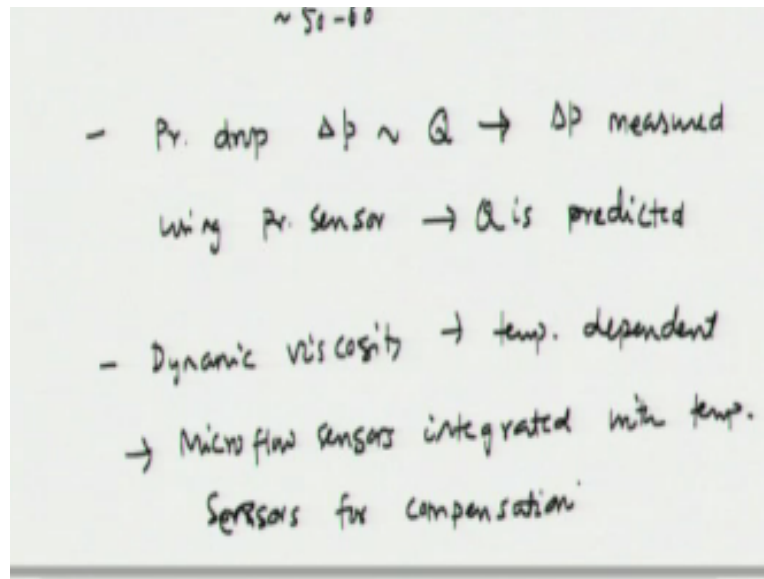 ~ 50-60
- Pr. drop Δp ~ Q → Δp measured
using Pr. sensor → Q is predicted
- Dynamic viscosity → temp. dependent
→ Micro flow sensors integrated with temp.
Sensors for compensation